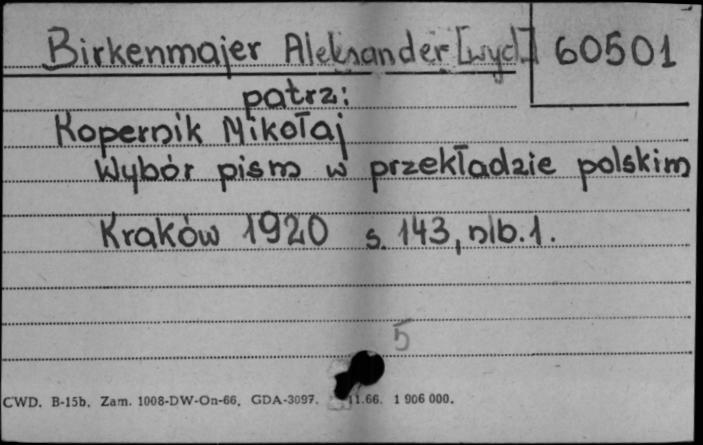 Birkenmajer Aleksander [wyd.] 60501
patrz:
Kopernik Mikołaj
Wybór pism w przekładzie polskim
Kraków 1920 s. 143, nlb. 1.
5
CWD. B-15b. Zam. 1008-DW-On-66. GDA-3097. 11.66. 1 906 000.